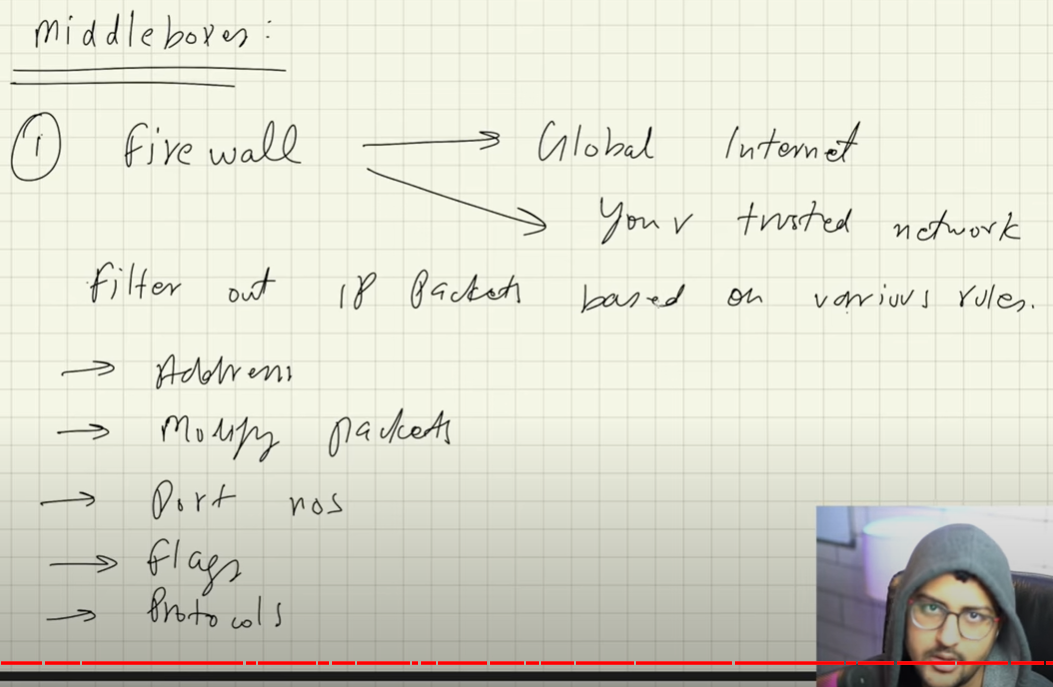 Middleboxes:
① Firewall → Global Internet
→ Your trusted network
Filter out IP Packets based on various rules.
→ Address
→ Modify packets
→ Port nos
→ Flags
→ Protocols